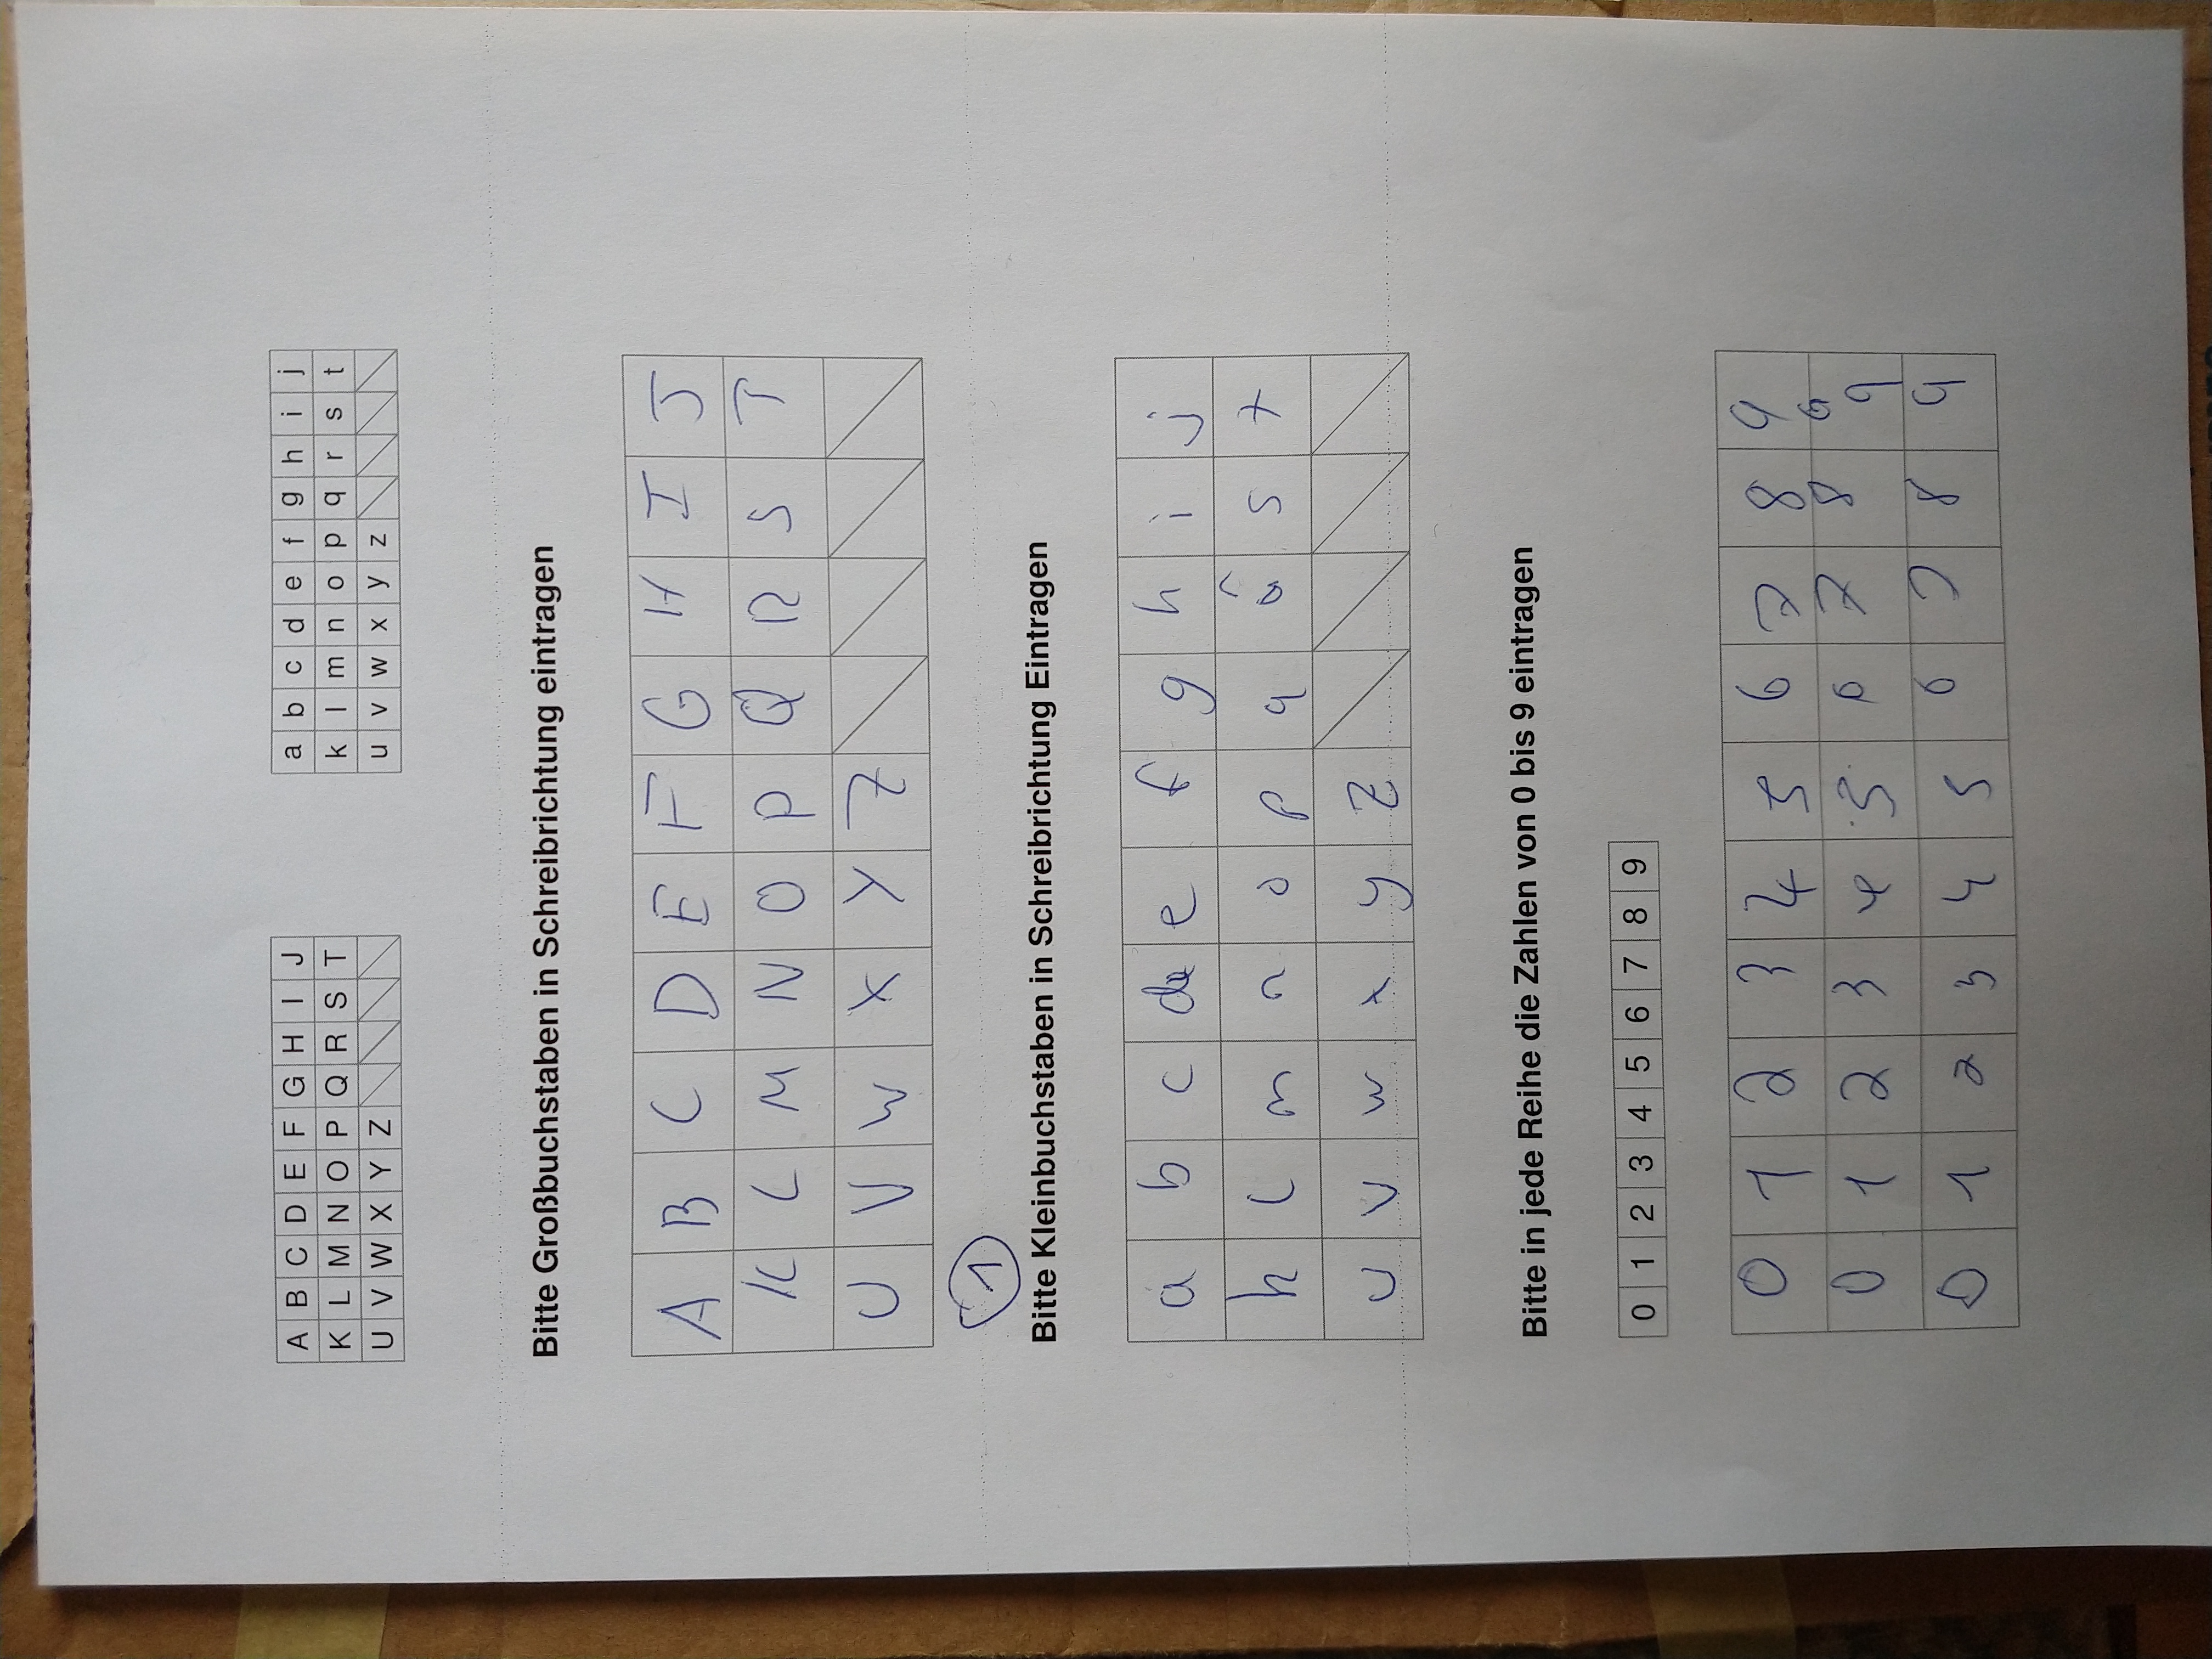 A B C D E F G H I J
K L M N O P Q R S T
U V W X Y Z
a b c d e f g h i j
k l m n o p q r s t
u v w x y z
Bitte Großbuchstaben in Schreibrichtung eintragen
A B C D E F G H I J
K L M N O P Q R S T
U V W X Y Z
1
Bitte Kleinbuchstaben in Schreibrichtung Eintragen
a b c d e f g h i j
k l m n o p q s t
u v w x y z
Bitte in jede Reihe die Zahlen von 0 bis 9 eintragen
0 1 2 3 4 5 6 7 8 9
0 1 2 3 4 5 6 7 8 9
0 1 2 3 4 5 6 7 8 9
0 1 2 3 4 5 6 7 8 9